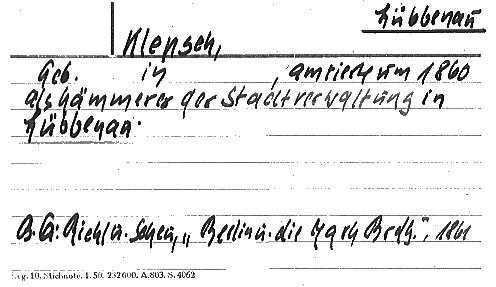 Lübbenau
Klepsch,
Geb. in , amtierte um 1860
als Kämmerer der Stadtverwaltung in
Lübbenau.
B.G: Riehl u. Scheu, „Berlin u. die Mark Brdbg.", 1861
g. 10. Stichnote. 1. 50. 232000. A.803. S. 4062